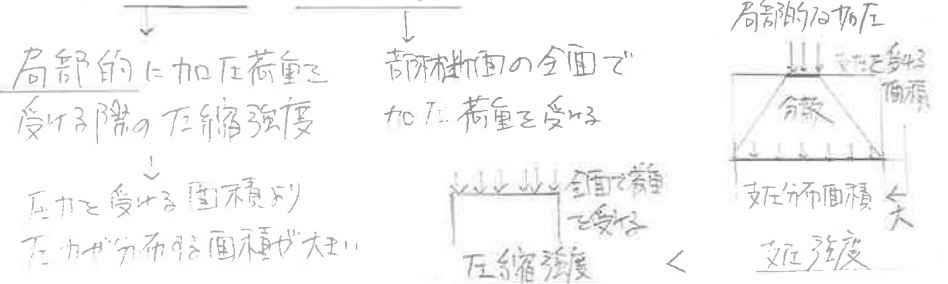 局部的に加圧荷重を
受ける際の圧縮強度
↓
圧力を受ける面積より
圧力が分布する面積が大きい
部材断面の全面で
加圧荷重を受ける
全面で荷重
を受ける
圧縮強度
<
局部的な加圧
支圧を受ける
面積
分散
支圧分布面積
大
支圧強度